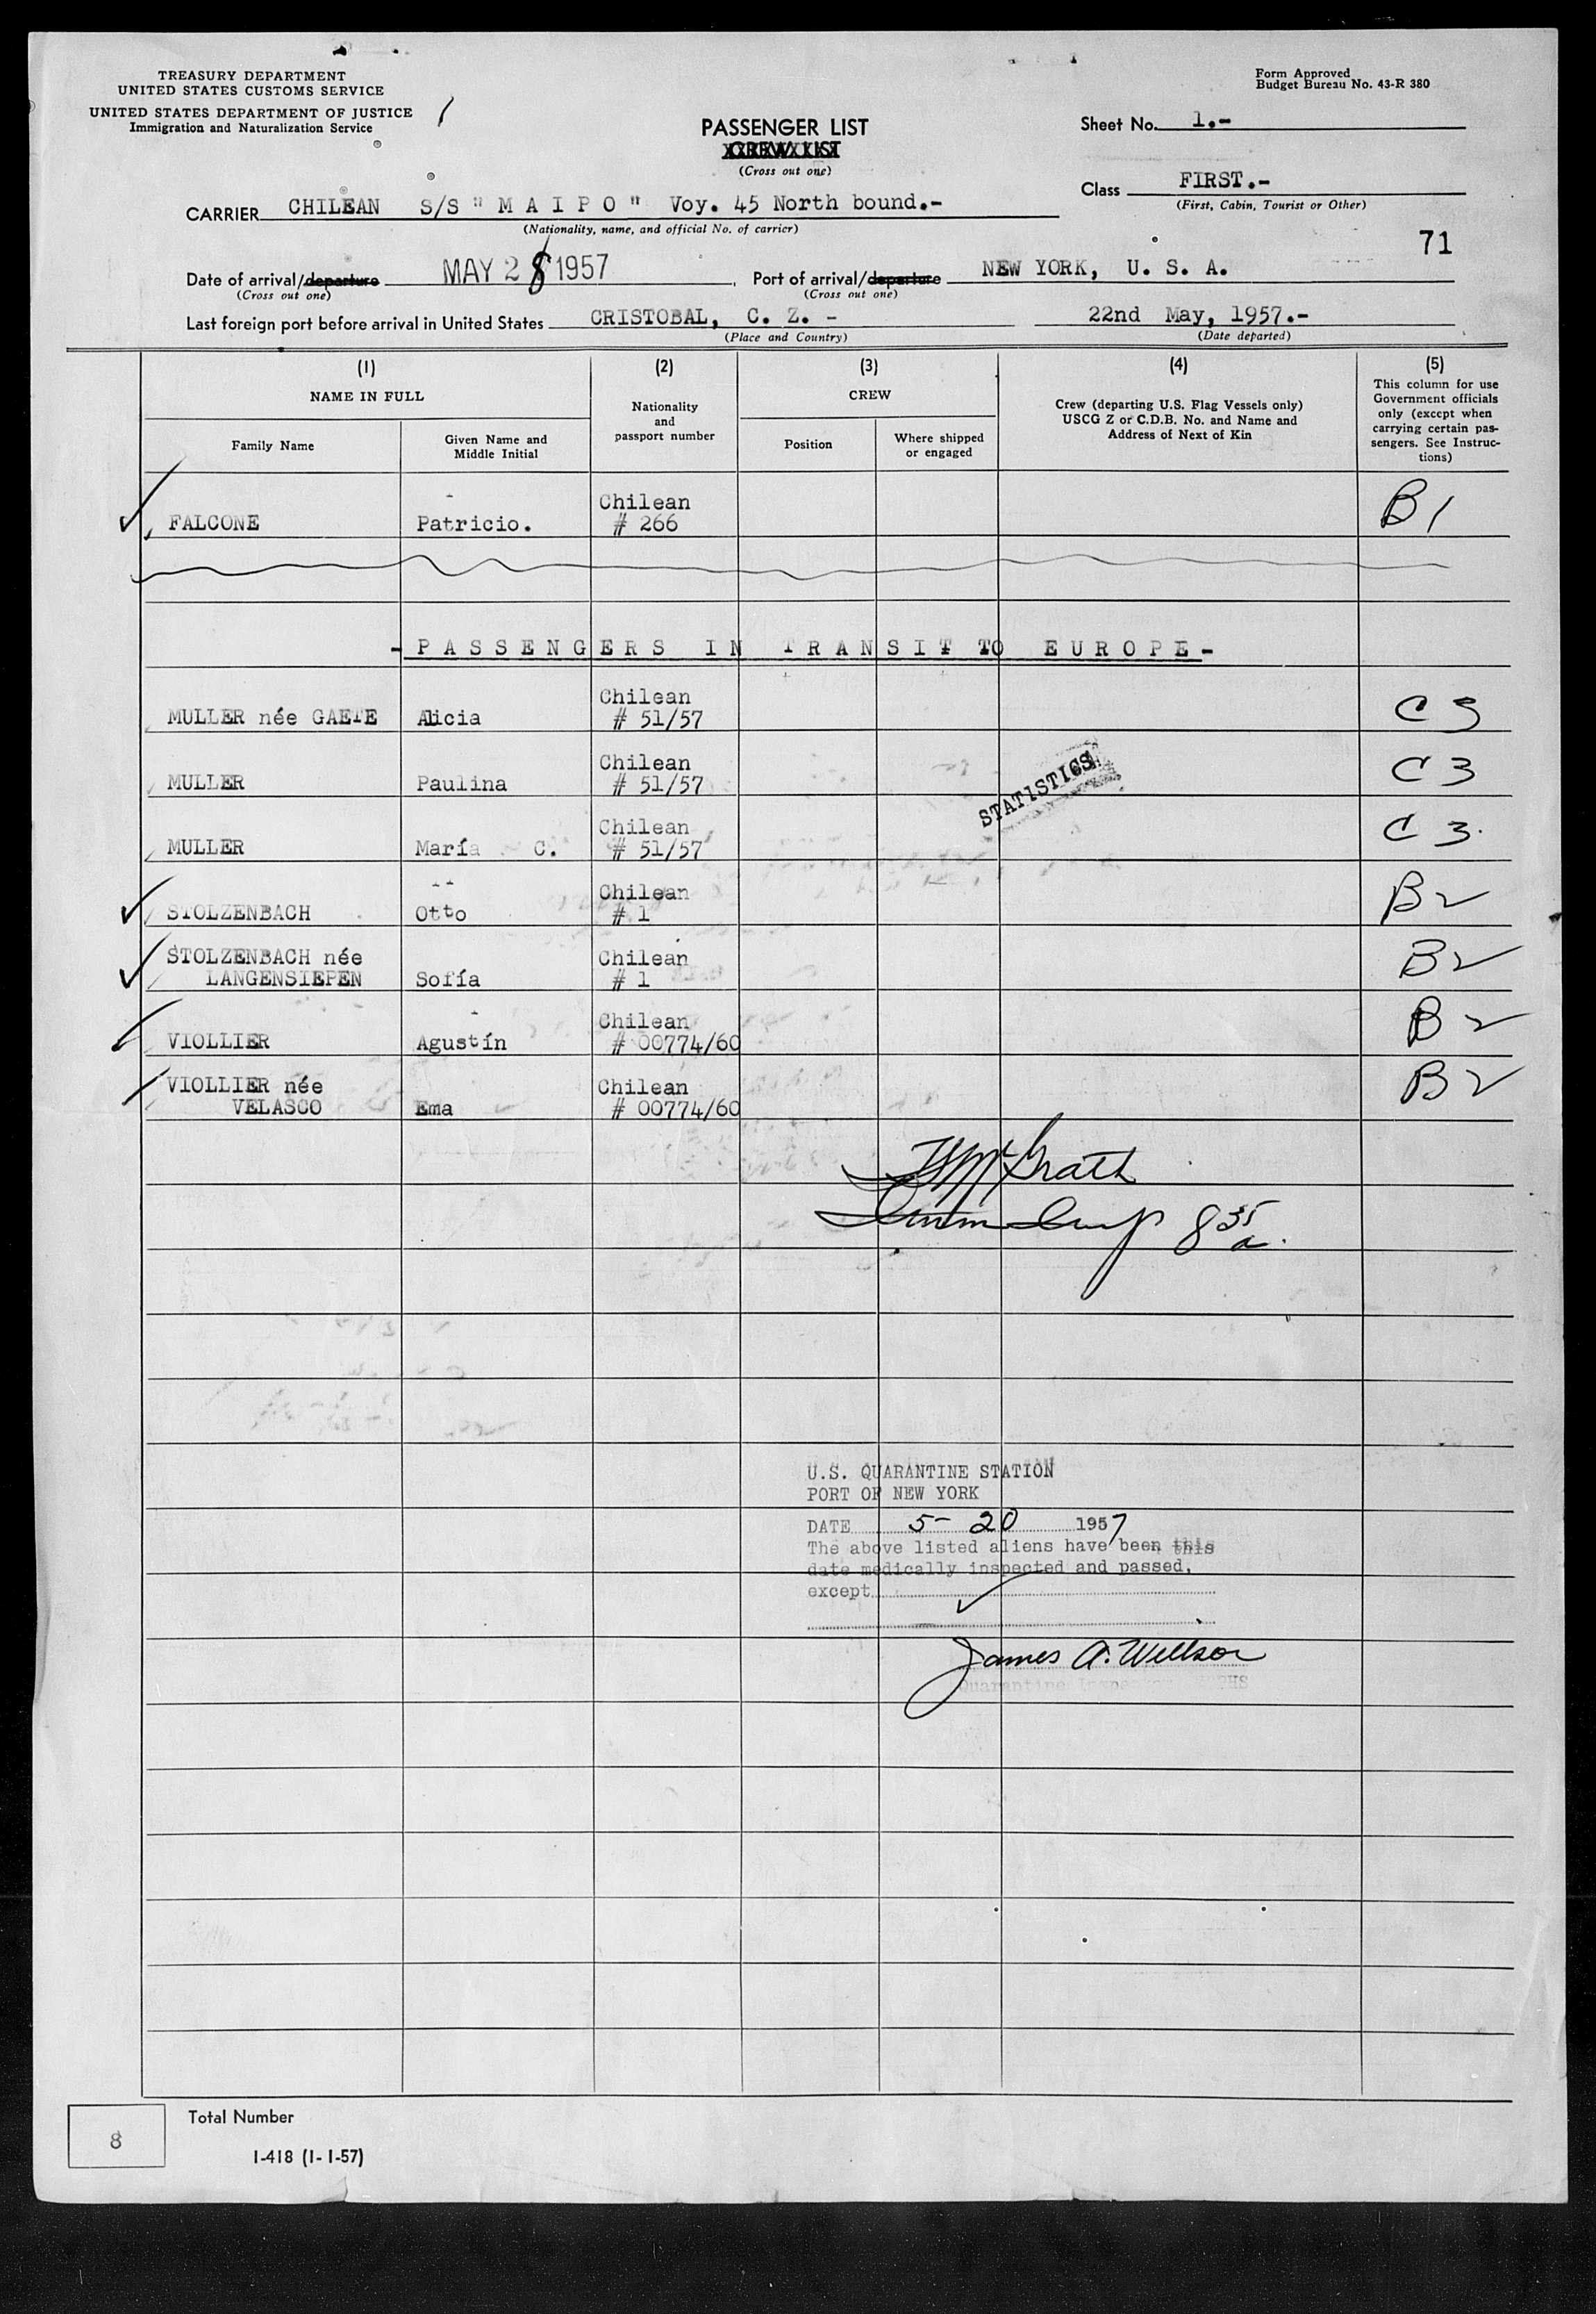 TREASURY DEPARTMENT
UNITED STATES CUSTOMS SERVICE
UNITED STATES DEPARTMENT OF JUSTICE
Immigration and Naturalization Service
Form Approved
Budget Bureau No. 43-R 380
PASSENGER LIST
CREW LIST
(Cross out one)
Sheet No. 1.-
Class FIRST.-
(First, Cabin, Tourist or Other)
CARRIER CHILEAN S/S "M A I P O" Voy. 45 North bound.-
(Nationality, name, and official No. of carrier)
71
Date of arrival/departure MAY 28 1957, Port of arrival/departure NEW YORK, U. S. A.
(Cross out one) (Cross out one)
Last foreign port before arrival in United States CRISTOBAL, C. Z. - 22nd May, 1957.-
(Place and Country) (Date departed)
(1) (2) (3) (4) (5)
NAME IN FULL
Family Name
Given Name and
Middle Initial
Nationality
and
passport number
CREW
Position
Where shipped
or engaged
Crew (departing U.S. Flag Vessels only)
USCG Z or C.D.B. No. and Name and
Address of Next of Kin
This column for use
Government officials
only (except when
carrying certain pas-
sengers. See Instruc-
tions)
FALCONE Patricio. Chilean # 266 B1
- P A S S E N G E R S I N T R A N S I T TO E U R O P E -
MULLER née GAETE Alicia Chilean # 51/57 C 3
MULLER Paulina Chilean # 51/57 C 3
MULLER María C. Chilean # 51/57 C 3.
STOLZENBACH Otto Chilean # 1 B2
STOLZENBACH née LANGENSIEPEN Sofía Chilean # 1 B2
VIOLLIER Agustín Chilean # 00774/60 B2
VIOLLIER née VELASCO Ema Chilean # 00774/60 B2
STATISTICS
McGrath
8 35 a.
U.S. QUARANTINE STATION
PORT OF NEW YORK
DATE 5- 20 1957
The above listed aliens have been this
date medically inspected and passed,
except
James A. Willson
Quarantine PHS
8
Total Number
I-418 (1-1-57)